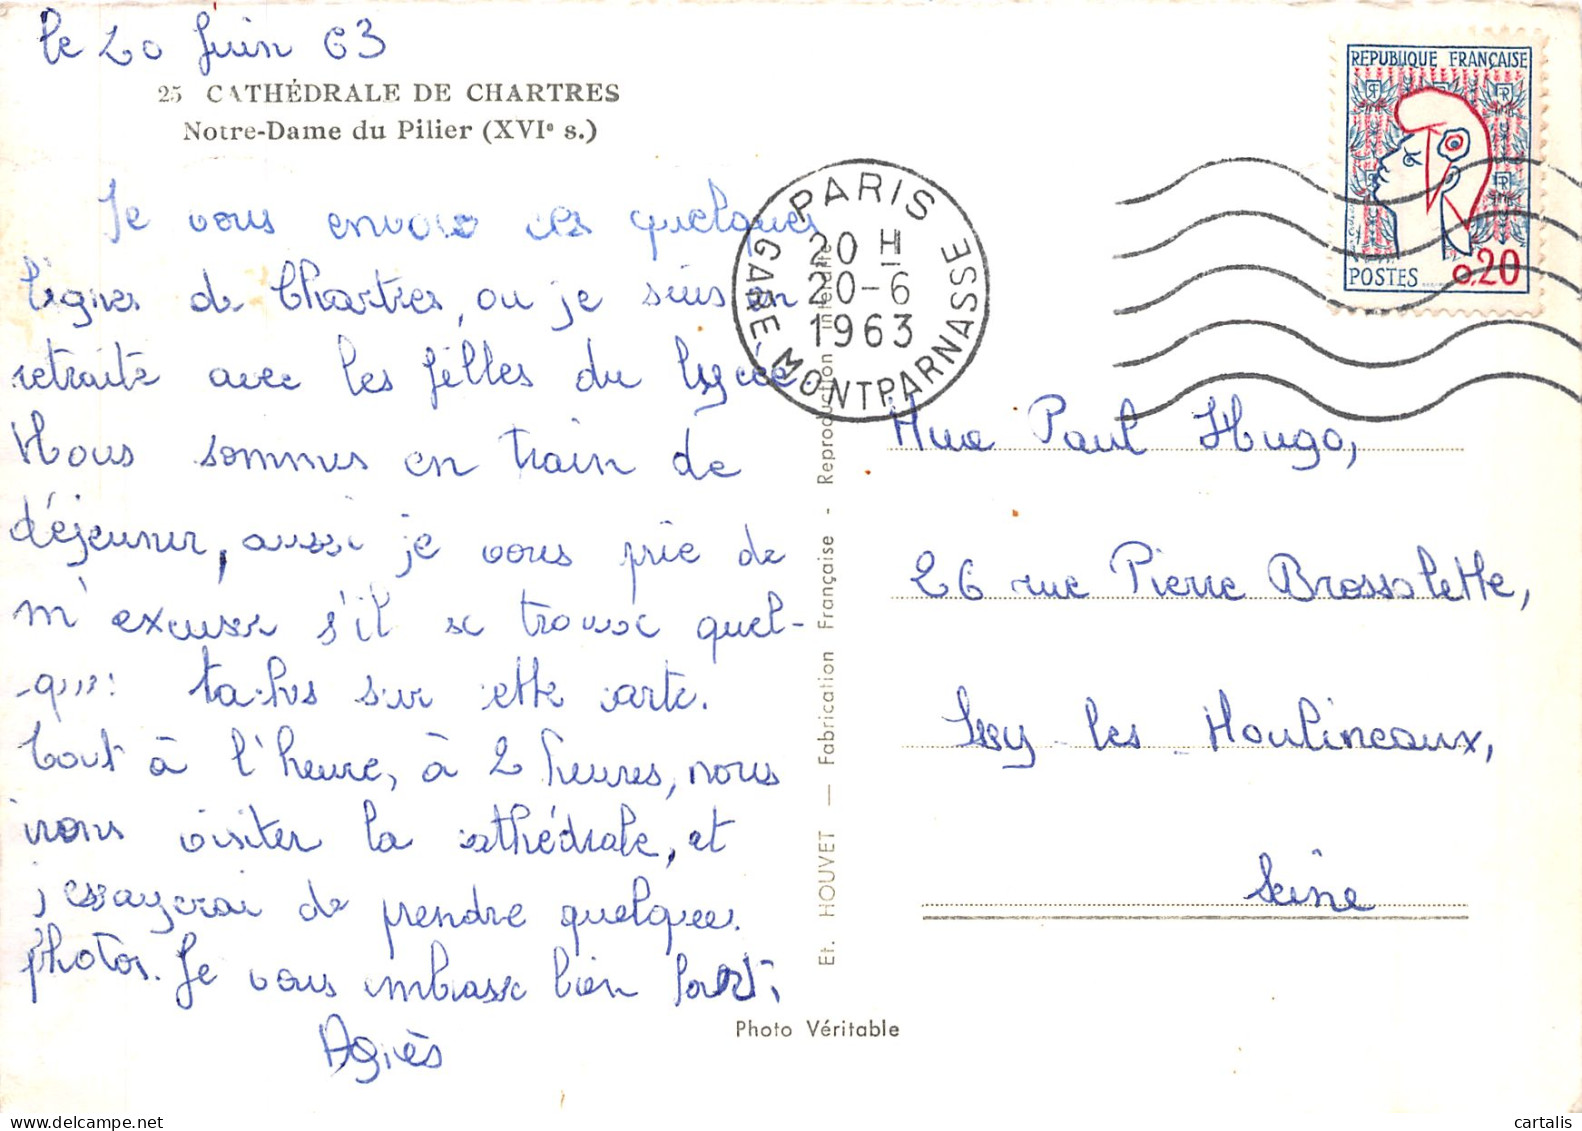 le 20 Juin 63
25 CATHÉDRALE DE CHARTRES
Notre-Dame du Pilier (XVIᵉ s.)
Je vous envoie ces quelques
lignes de Chartres, ou je suis en
retraite avec les filles du lycée.
Nous sommes en train de
déjeuner, aussi je vous prie de
m'excuser s'il se trouve quel-
-ques taches sur cette carte.
Tout à l'heure, à 2 heures, nous
irons visiter la cathédrale, et
j'essayerai de prendre quelques
photos. Je vous embrasse bien fort,
Agnès
PARIS
GARE MONTPARNASSE
20 H
20-6
1963
REPUBLIQUE FRANÇAISE
RF
POSTES
0,20
Mme Paul Hugo,
26 rue Pierre Brossolette,
Issy-les-Moulineaux,
Seine
Et. HOUVET — Fabrication Française - Reproduction interdite
Photo Véritable
cartalis